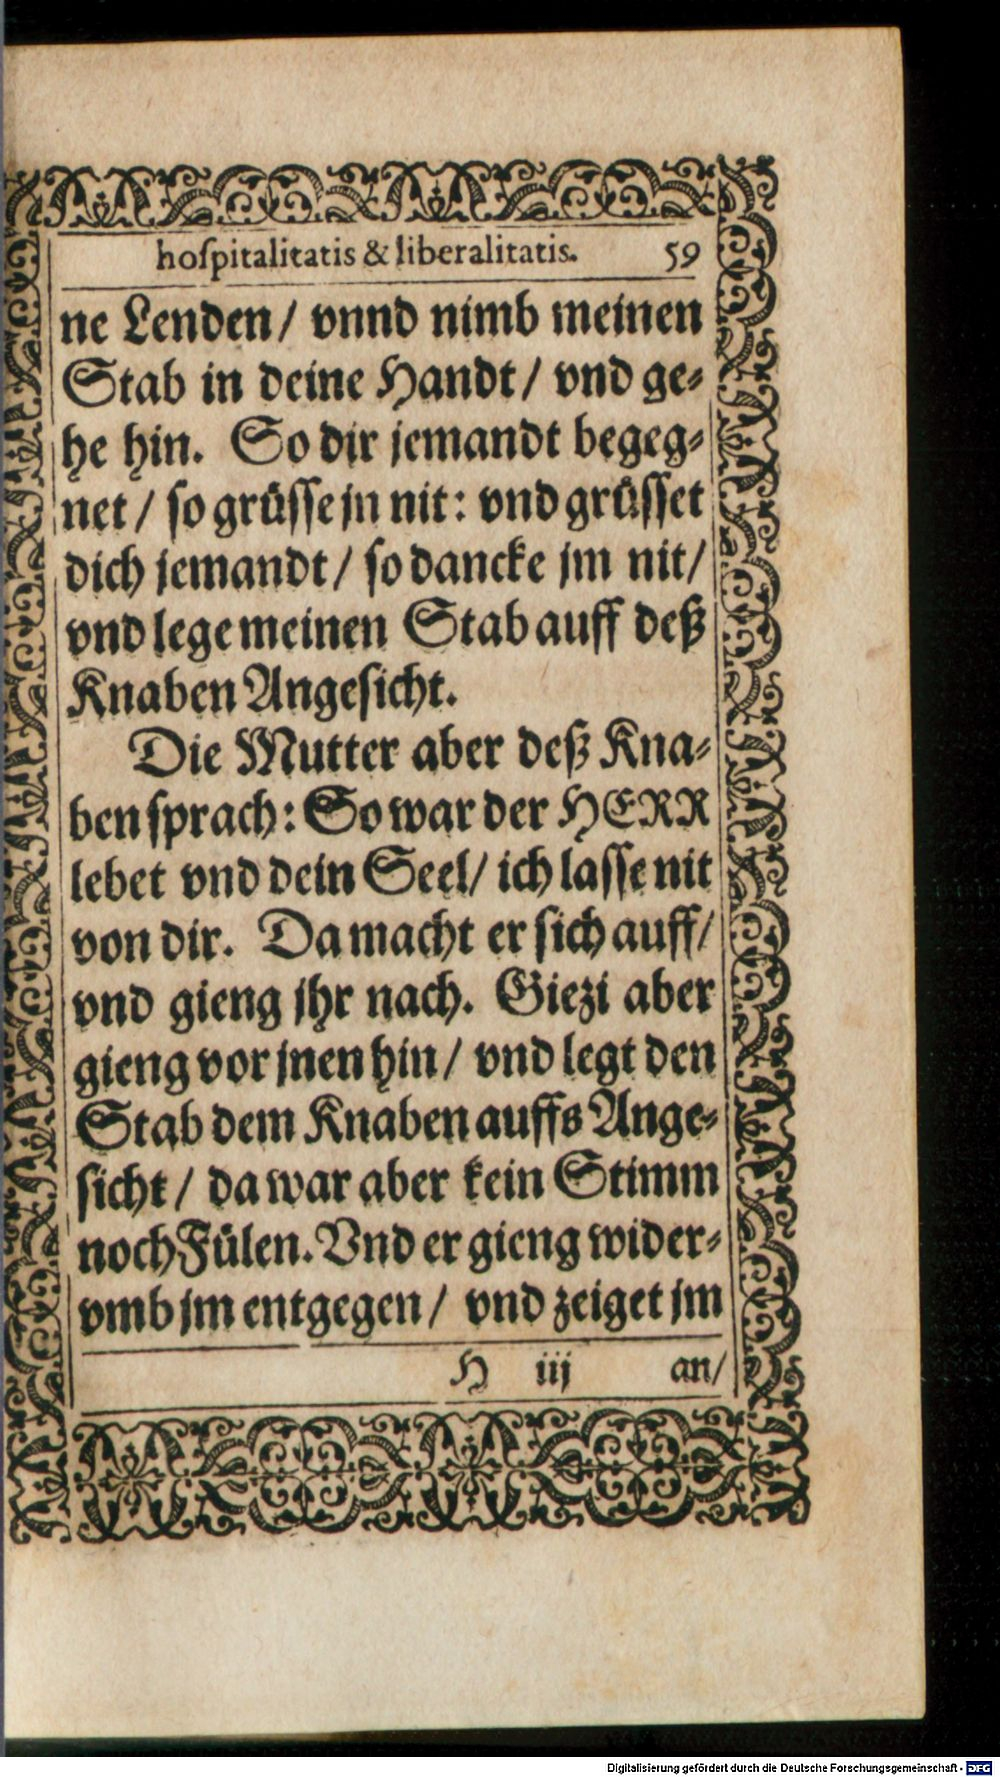 hoſpitalitatis & liberalitatis. 59
ne Lenden / vnnd nimb meinen
Stab in deine Handt / vnd ge⸗
he hin. So dir jemandt begeg⸗
net / ſo grüſſe jn nit: vnd grüſſet
dich jemandt / ſo dancke jm nit /
vnd lege meinen Stab auff deß
Knaben Angeſicht.
Die Mutter aber deß Kna⸗
ben ſprach: So war der HERR
lebet vnd dein Seel / ich laſſe nit
von dir. Da macht er ſich auff /
vnd gieng jhr nach. Giezi aber
gieng vor jnen hin / vnd legt den
Stab dem Knaben auffs Ange⸗
ſicht / da war aber kein Stimm
noch Fülen. Vnd er gieng wider⸗
vmb jm entgegen / vnd zeiget jm
H iij an /
Digitalisierung gefördert durch die Deutsche Forschungsgemeinschaft - DFG